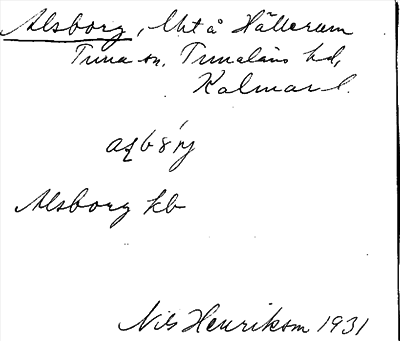 Alsborg, Utå Hällerum
Tuna sn, Tunaläns hd,
Kalmar l.
Alsborg kb
Nils Henrikson 1931